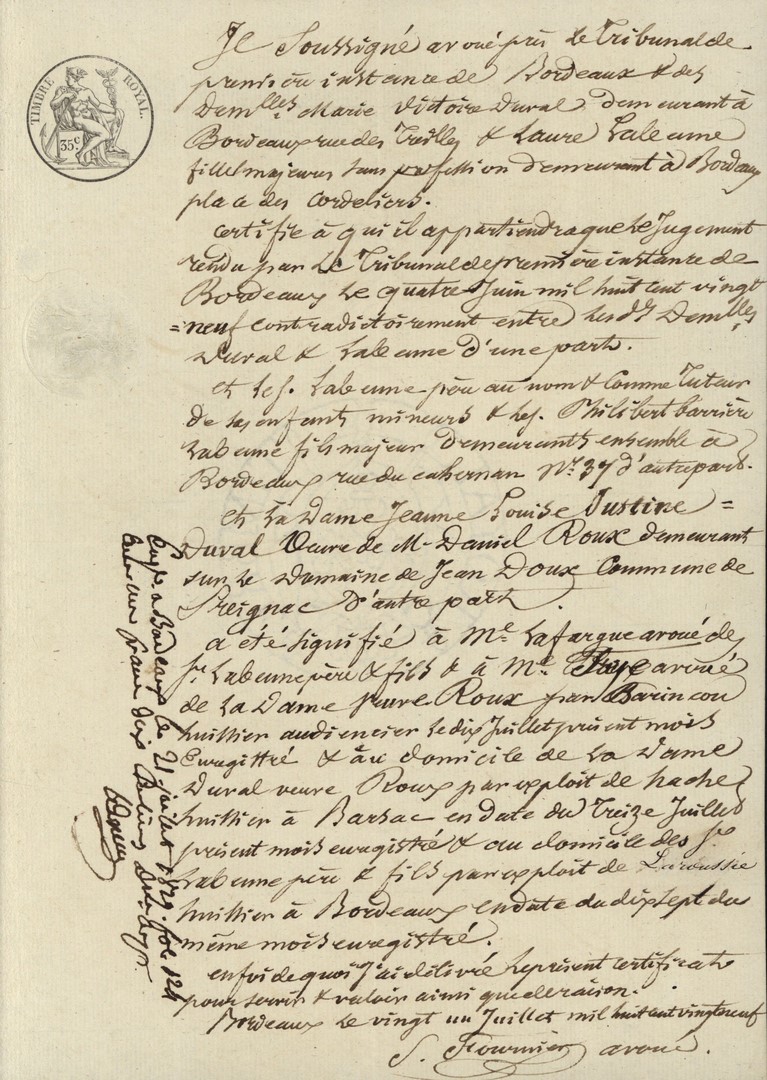 TIMBRE ROYAL.
35c
Je Soussigné avoué près le Tribunal de
première instance de Bordeaux & des
Demlles Marie Victoire Duval demeurant à
Bordeaux rue des Treilles & Laure Labeume
filles majeures sans profession demeurant à Bordeaux
place des Cordeliers.
Certifie à qui il appartiendra que le Jugement
rendu par le Tribunal de première instance de
Bordeaux le quatre Juin mil huit cent vingt
=neuf contradictoirement entre les ds Demlles
Duval & Labeume d'une part.
et le s. Labeume père au nom & Comme Tuteur
de ses enfants mineurs & le s. Philibert Carrière
Labeume fils majeur demeurants ensemble à
Bordeaux rue du cahernan No. 37 d'autre part.
et La Dame Jeanne Louise Justine =
Duval Veuve de Mr Daniel Roux demeurant
sur le Domaine de Jean Doux Commune de
Preignac d'autre part.
a été signifié à Me. Lafargue avoué des
srs Labeume père & fils & à Me. avoué
de La Dame Veuve Roux par Barincou
huissier audiencier le dix Juillet présent mois
Enregistré & au domicile de La Dame
Duval veuve Roux par exploit de hache
huissier à Barsac en date du Treize Juillet
présent mois enregistré & au domicile des srs
Labeume père & fils par exploit de Laroussie
huissier à Bordeaux en date du dix sept du
même mois enregistré.
en foi de quoi J'ai délivré le présent certificat
pour servir & valoir ainsi que de raison.
Bordeaux le vingt un Juillet mil huit cent vingt neuf
S. Fournier avoué.
Enrg. à Bordeaux le 21 juillet 1829. fol. 124
un franc dix